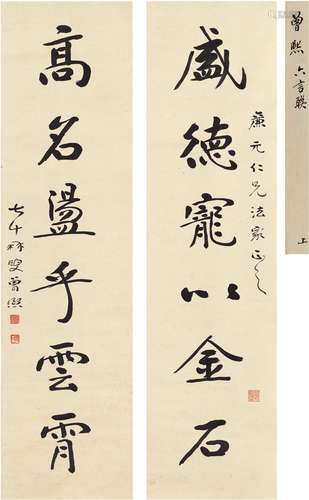 盛德寵以金石
廉元仁兄法家正之
高名盪乎雲霄
七十秊叟曾熙
曾熙 六言聯
上